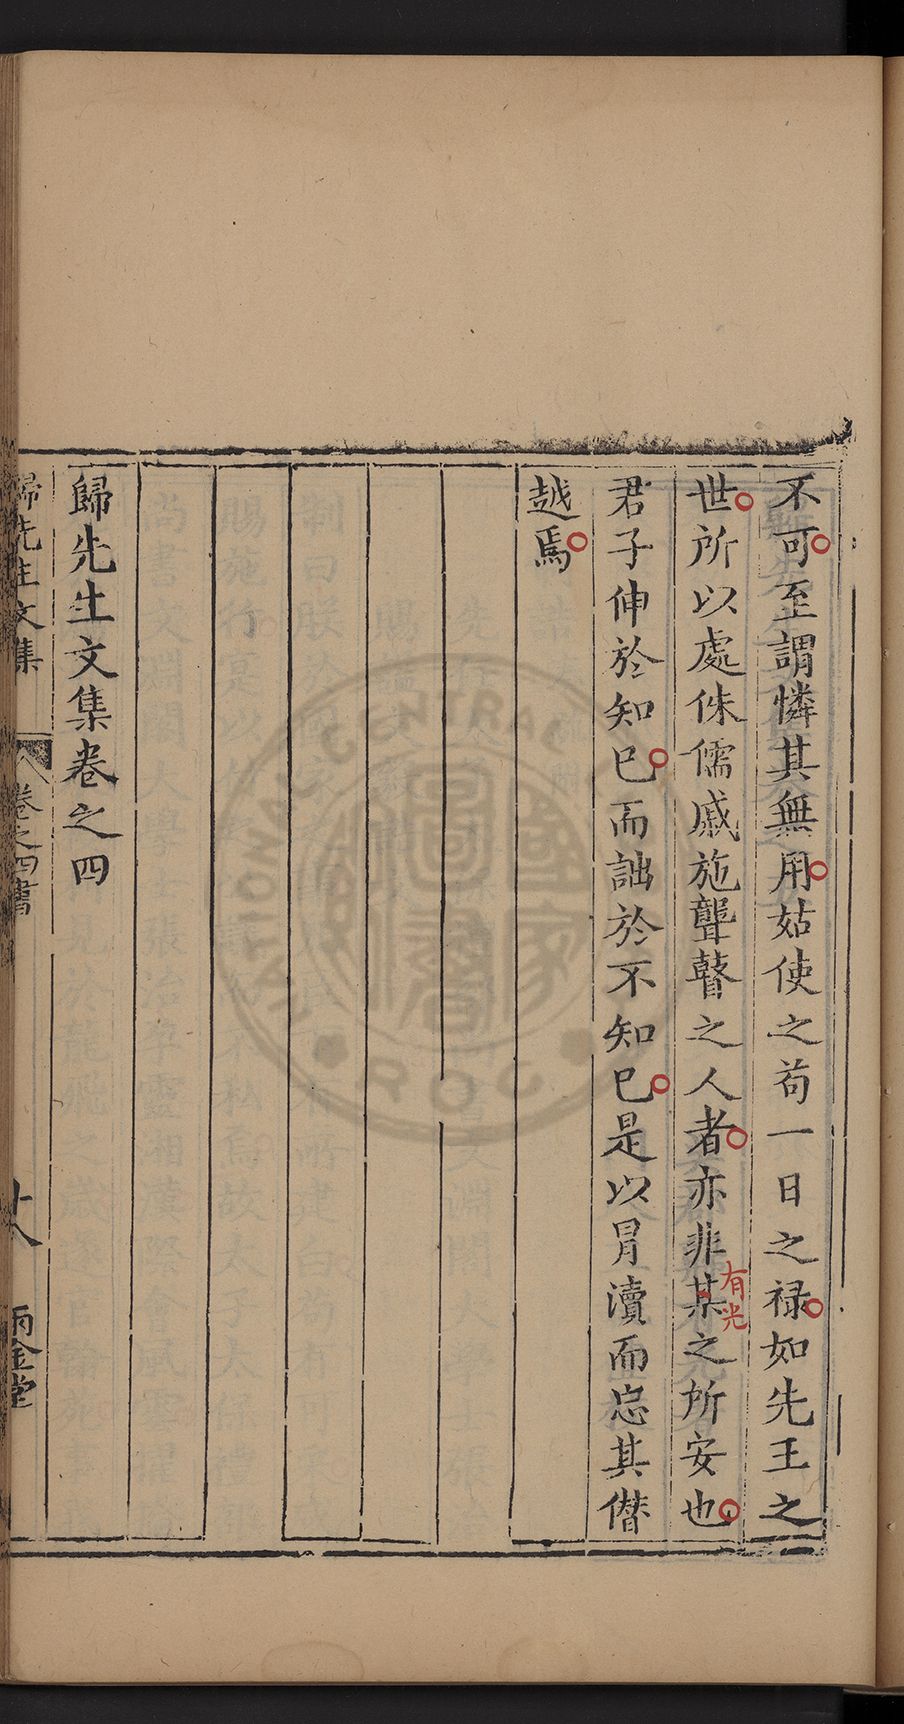 不可至謂憐其無用姑使之苟一日之祿如先王之
世所以處侏儒戚施聾瞽之人者亦非某之所安也
有光
君子伸於知巳而詘於不知巳是以冐瀆而忘其僭
越焉
歸先生文集卷之四
歸先生文集
卷之四書
十八
雨金堂